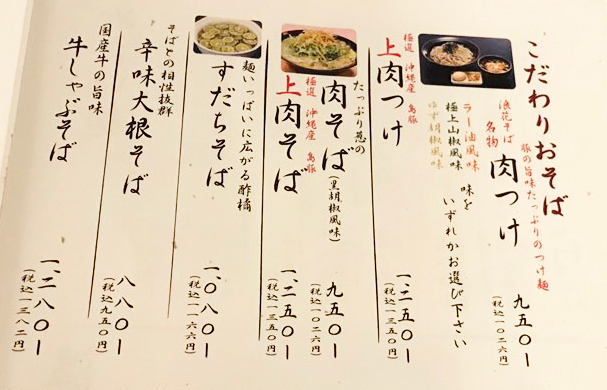 こだわりおそば
豚の旨味たっぷりのつけ麺
浪花そば
名物
肉つけ
九五〇ー
(税込一〇二六円)
ラー油風味
極上山椒風味
ゆず胡椒風味
味を
いずれかお選び下さい
極選 沖縄産 島豚
上肉つけ
一、二五〇ー
(税込一三五〇円)
たっぷり葱の
肉そば(黒胡椒風味)
九五〇ー
(税込一〇二六円)
極選 沖縄産 島豚
上肉そば
一、二五〇ー
(税込一三五〇円)
麺いっぱいに広がる酢橘
すだちそば
一、〇八〇ー
(税込一一六六円)
そばとの相性抜群
辛味大根そば
八八〇ー
(税込九五〇円)
国産牛の旨味
牛しゃぶそば
一、二八〇ー
(税込一三八二円)